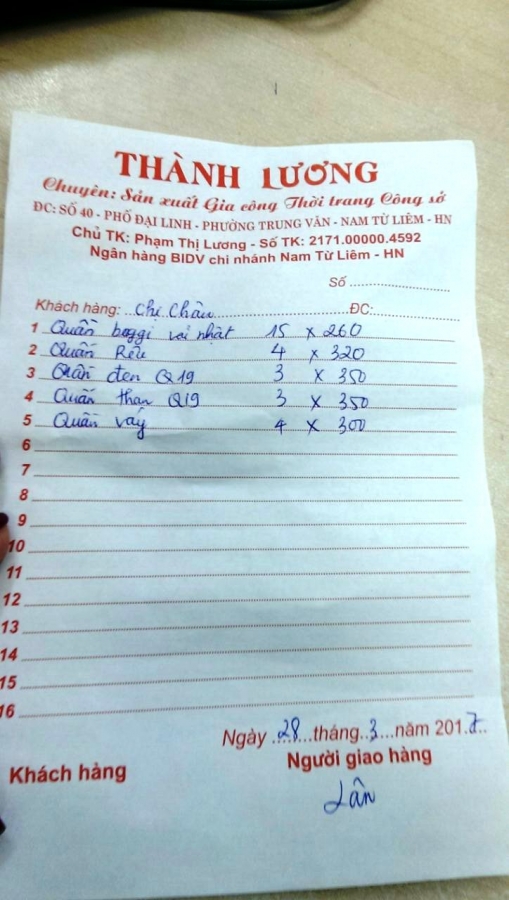 THÀNH LƯƠNG
Chuyên: Sản xuất Gia công Thời trang Công sở
ĐC: SỐ 40 - PHỐ ĐẠI LINH - PHƯỜNG TRUNG VĂN - NAM TỪ LIÊM - HN
Chủ TK: Phạm Thị Lương - Số TK: 2171.00000.4592
Ngân hàng BIDV chi nhánh Nam Từ Liêm - HN
Số
Khách hàng: Chị Châu ĐC:
1 Quần baggi vải nhật 15 x 260
2 Quần Rêu 4 x 320
3 Quần đen Q19 3 x 350
4 Quần than Q19 3 x 350
5 Quần váy 4 x 300
6
7
8
9
10
11
12
13
14
15
16
Ngày 28 tháng 3 năm 2017
Khách hàng Người giao hàng
Lân